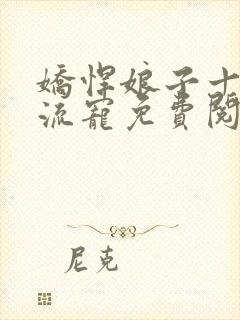 嬌悍娘子十
流寵免費閱
尼克